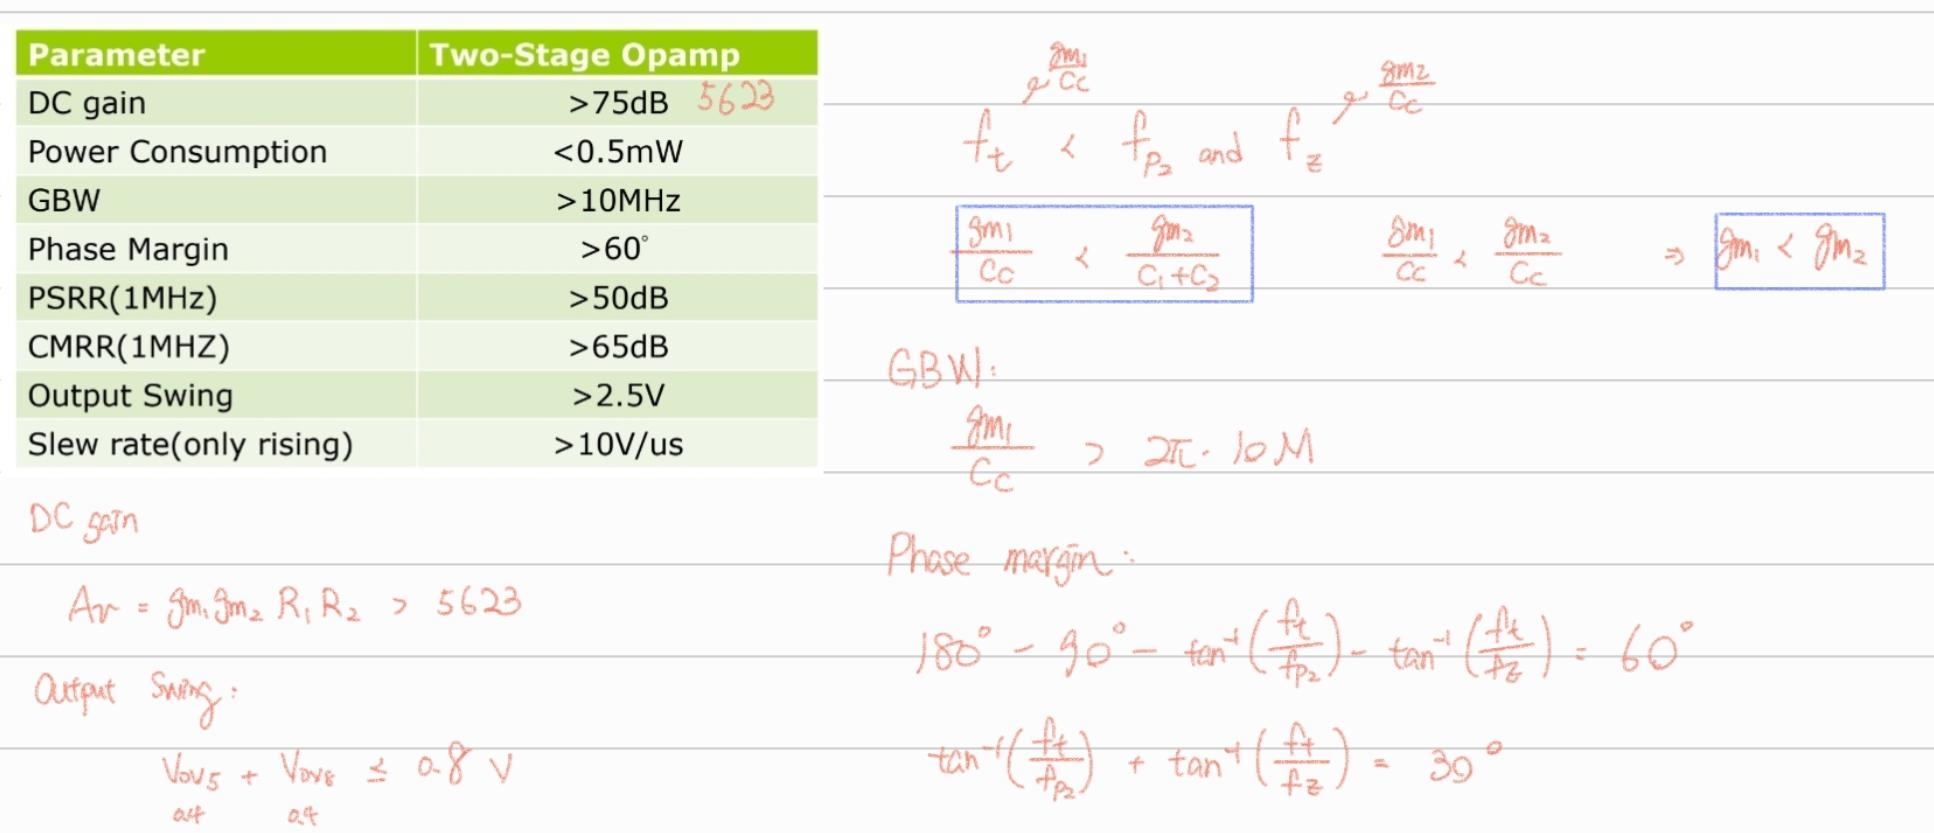 Parameter Two-Stage Opamp
DC gain >75dB 5623
Power Consumption <0.5mW
GBW >10MHz
Phase Margin >60°
PSRR(1MHz) >50dB
CMRR(1MHZ) >65dB
Output Swing >2.5V
Slew rate(only rising) >10V/us
DC gain
Av = gm1 gm2 R1 R2 > 5623
Output Swing:
Vov5 + Vov8 ≤ 0.8 V
0.4 0.4
gm1/Cc gm2/Cc
ft < fp2 and fz
gm1/Cc < gm2/(C1+C2) gm1/Cc < gm2/Cc ⇒ gm1 < gm2
GBW:
gm1/Cc > 2π · 10M
Phase margin:
180° - 90° - tan⁻¹(ft/fp2) - tan⁻¹(ft/fz) = 60°
tan⁻¹(ft/fp2) + tan⁻¹(ft/fz) = 30°